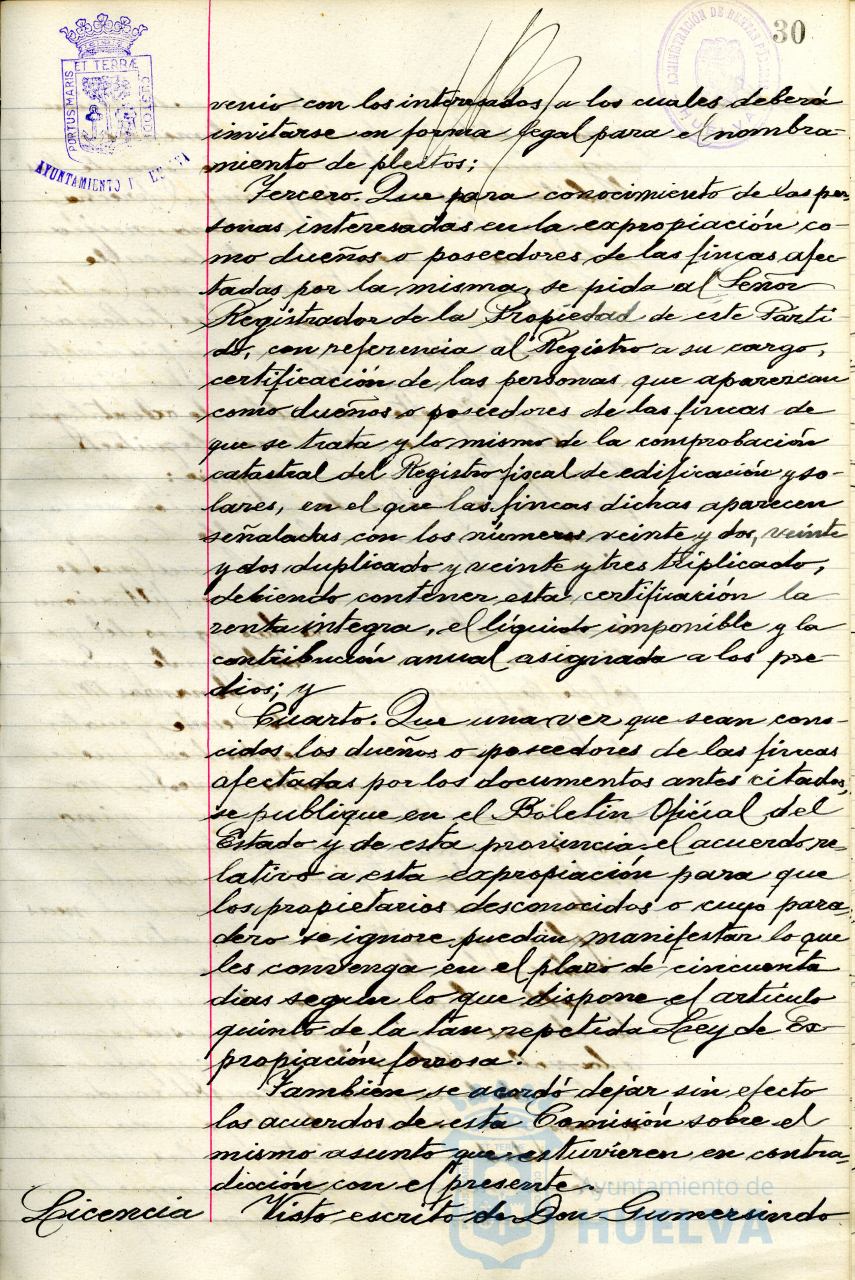 30
PORTUS MARIS ET TERRÆ CUSTODIA
AYUNTAMIENTO DE HUELVA
ADMINISTRACIÓN DE RENTAS PÚBLICAS
HUELVA
venio con los interesados, a los cuales deberá
invitarse en forma legal para el nombra-
miento de peritos;
Tercero. Que para conocimiento de las per-
sonas interesadas en la expropiación co-
mo dueños o poseedores de las fincas afec
tadas por la misma, se pida al Señor
Registrador de la Propiedad de este Parti-
do, con referencia al Registro a su cargo,
certificación de las personas que aparezcan
como dueños o poseedores de las fincas de
que se trata y lo mismo de la comprobación
catastral del Registro fiscal de edificación y so-
lares, en el que las fincas dichas aparecen
señaladas con los números veinte y dos, veinte
y dos duplicado y veinte y tres triplicado,
debiendo contener esta certificación la
renta integra, el líquido imponible y la
contribución anual asignada a los pre-
dios; y
Cuarto. Que una vez que sean cono-
cidos los dueños o poseedores de las fincas
afectadas por los documentos antes citados,
se publique en el Boletin Oficial del
Estado y de esta provincia el acuerdo re-
lativo a esta expropiación para que
los propietarios desconocidos o cuyo para-
dero se ignore puedan manifestar lo que
les convenga en el plazo de cincuenta
dias segun lo que dispone el artículo
quinto de la tan repetida Ley de Ex
propiación forzosa.
También se acordó dejar sin efecto
los acuerdos de esta Comisión sobre el
mismo asunto que estuvieren en contra-
dicción con el presente.
Licencia Visto escrito de Don Gumersindo
Ayuntamiento de
HUELVA